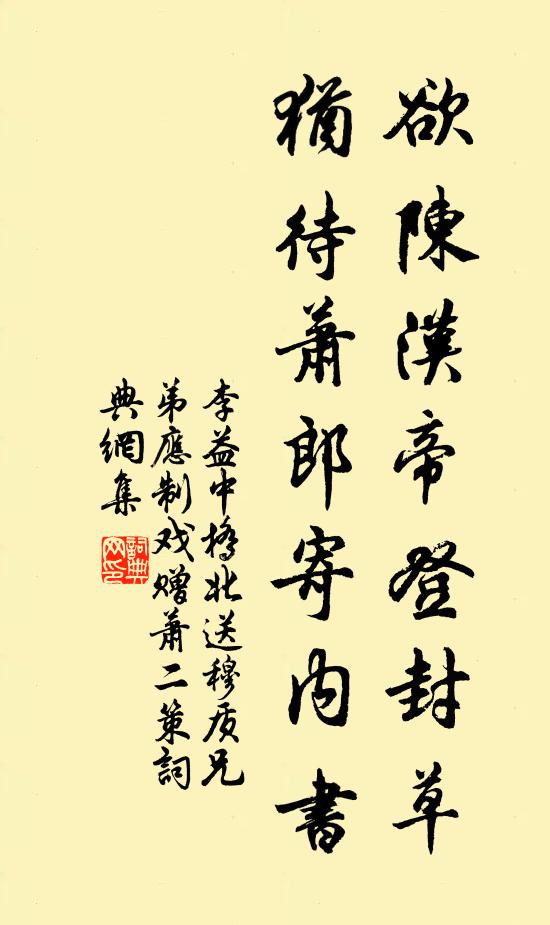 欲陳漢帝登封草
猶待蕭郎寄内書
李益中橋北送穆质兄
弟應制戏贈蕭二策詞
典網集
詞典
网印